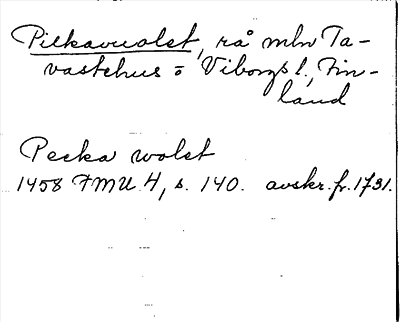 Pilkavuolet, rå mln Ta-
vastehus o Viborgs l., Fin-
land
Pecka wolet
1458 FMU 4, s. 140. avskr. fr. 1731.